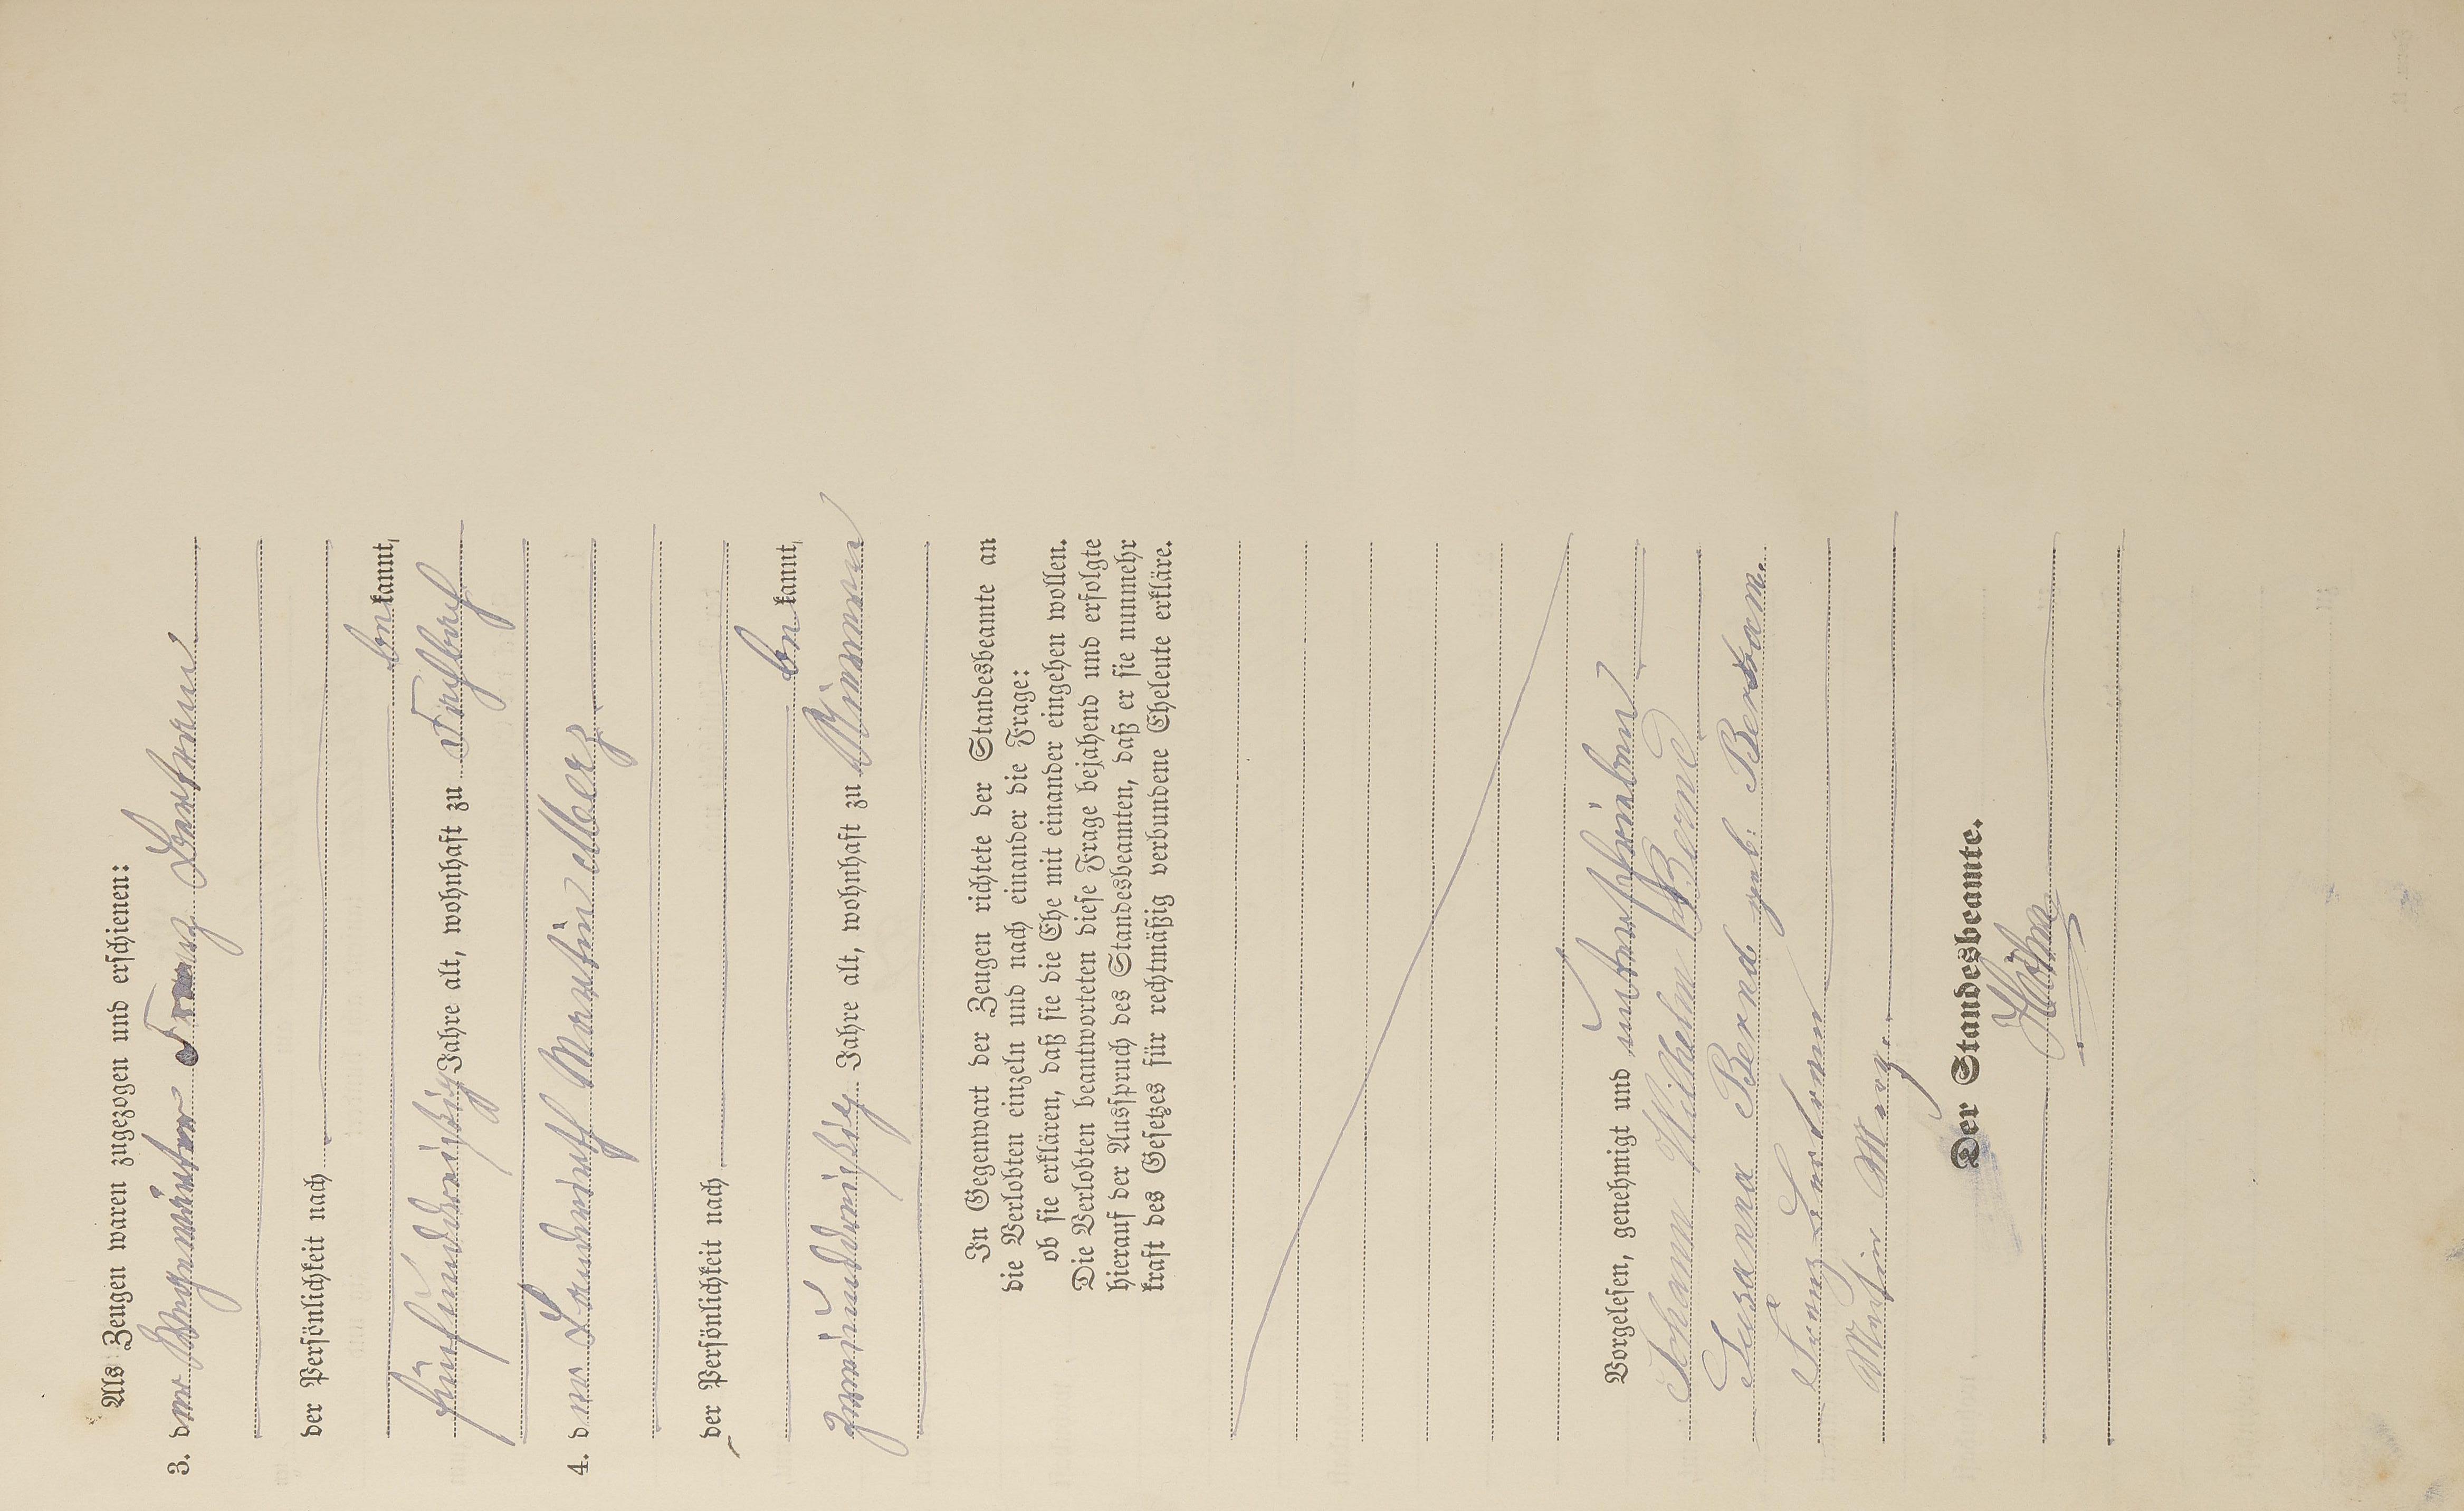 Als Zeugen waren zugezogen und erschienen:
3. der Wegewärter Franz Bertram
der Persönlichkeit nach
bekannt,
fünfunddreißig Jahre alt, wohnhaft zu Fischbach
4. der Landwirth Martin Merz
der Persönlichkeit nach
bekannt,
zweiunddreißig Jahre alt, wohnhaft zu
In Gegenwart der Zeugen richtete der Standesbeamte an
die Verlobten einzeln und nach einander die Frage:
ob sie erklären, daß sie die Ehe mit einander eingehen wollen.
Die Verlobten beantworteten diese Frage bejahend und erfolgte
hierauf der Ausspruch des Standesbeamten, daß er sie nunmehr
kraft des Gesetzes für rechtmäßig verbundene Eheleute erkläre.
Vorgelesen, genehmigt und unterschrieben
Johann Wilhelm Bernd
Susanna Bernd geb: Bertram.
Franz Bertram
Martin Merz.
Der Standesbeamte.